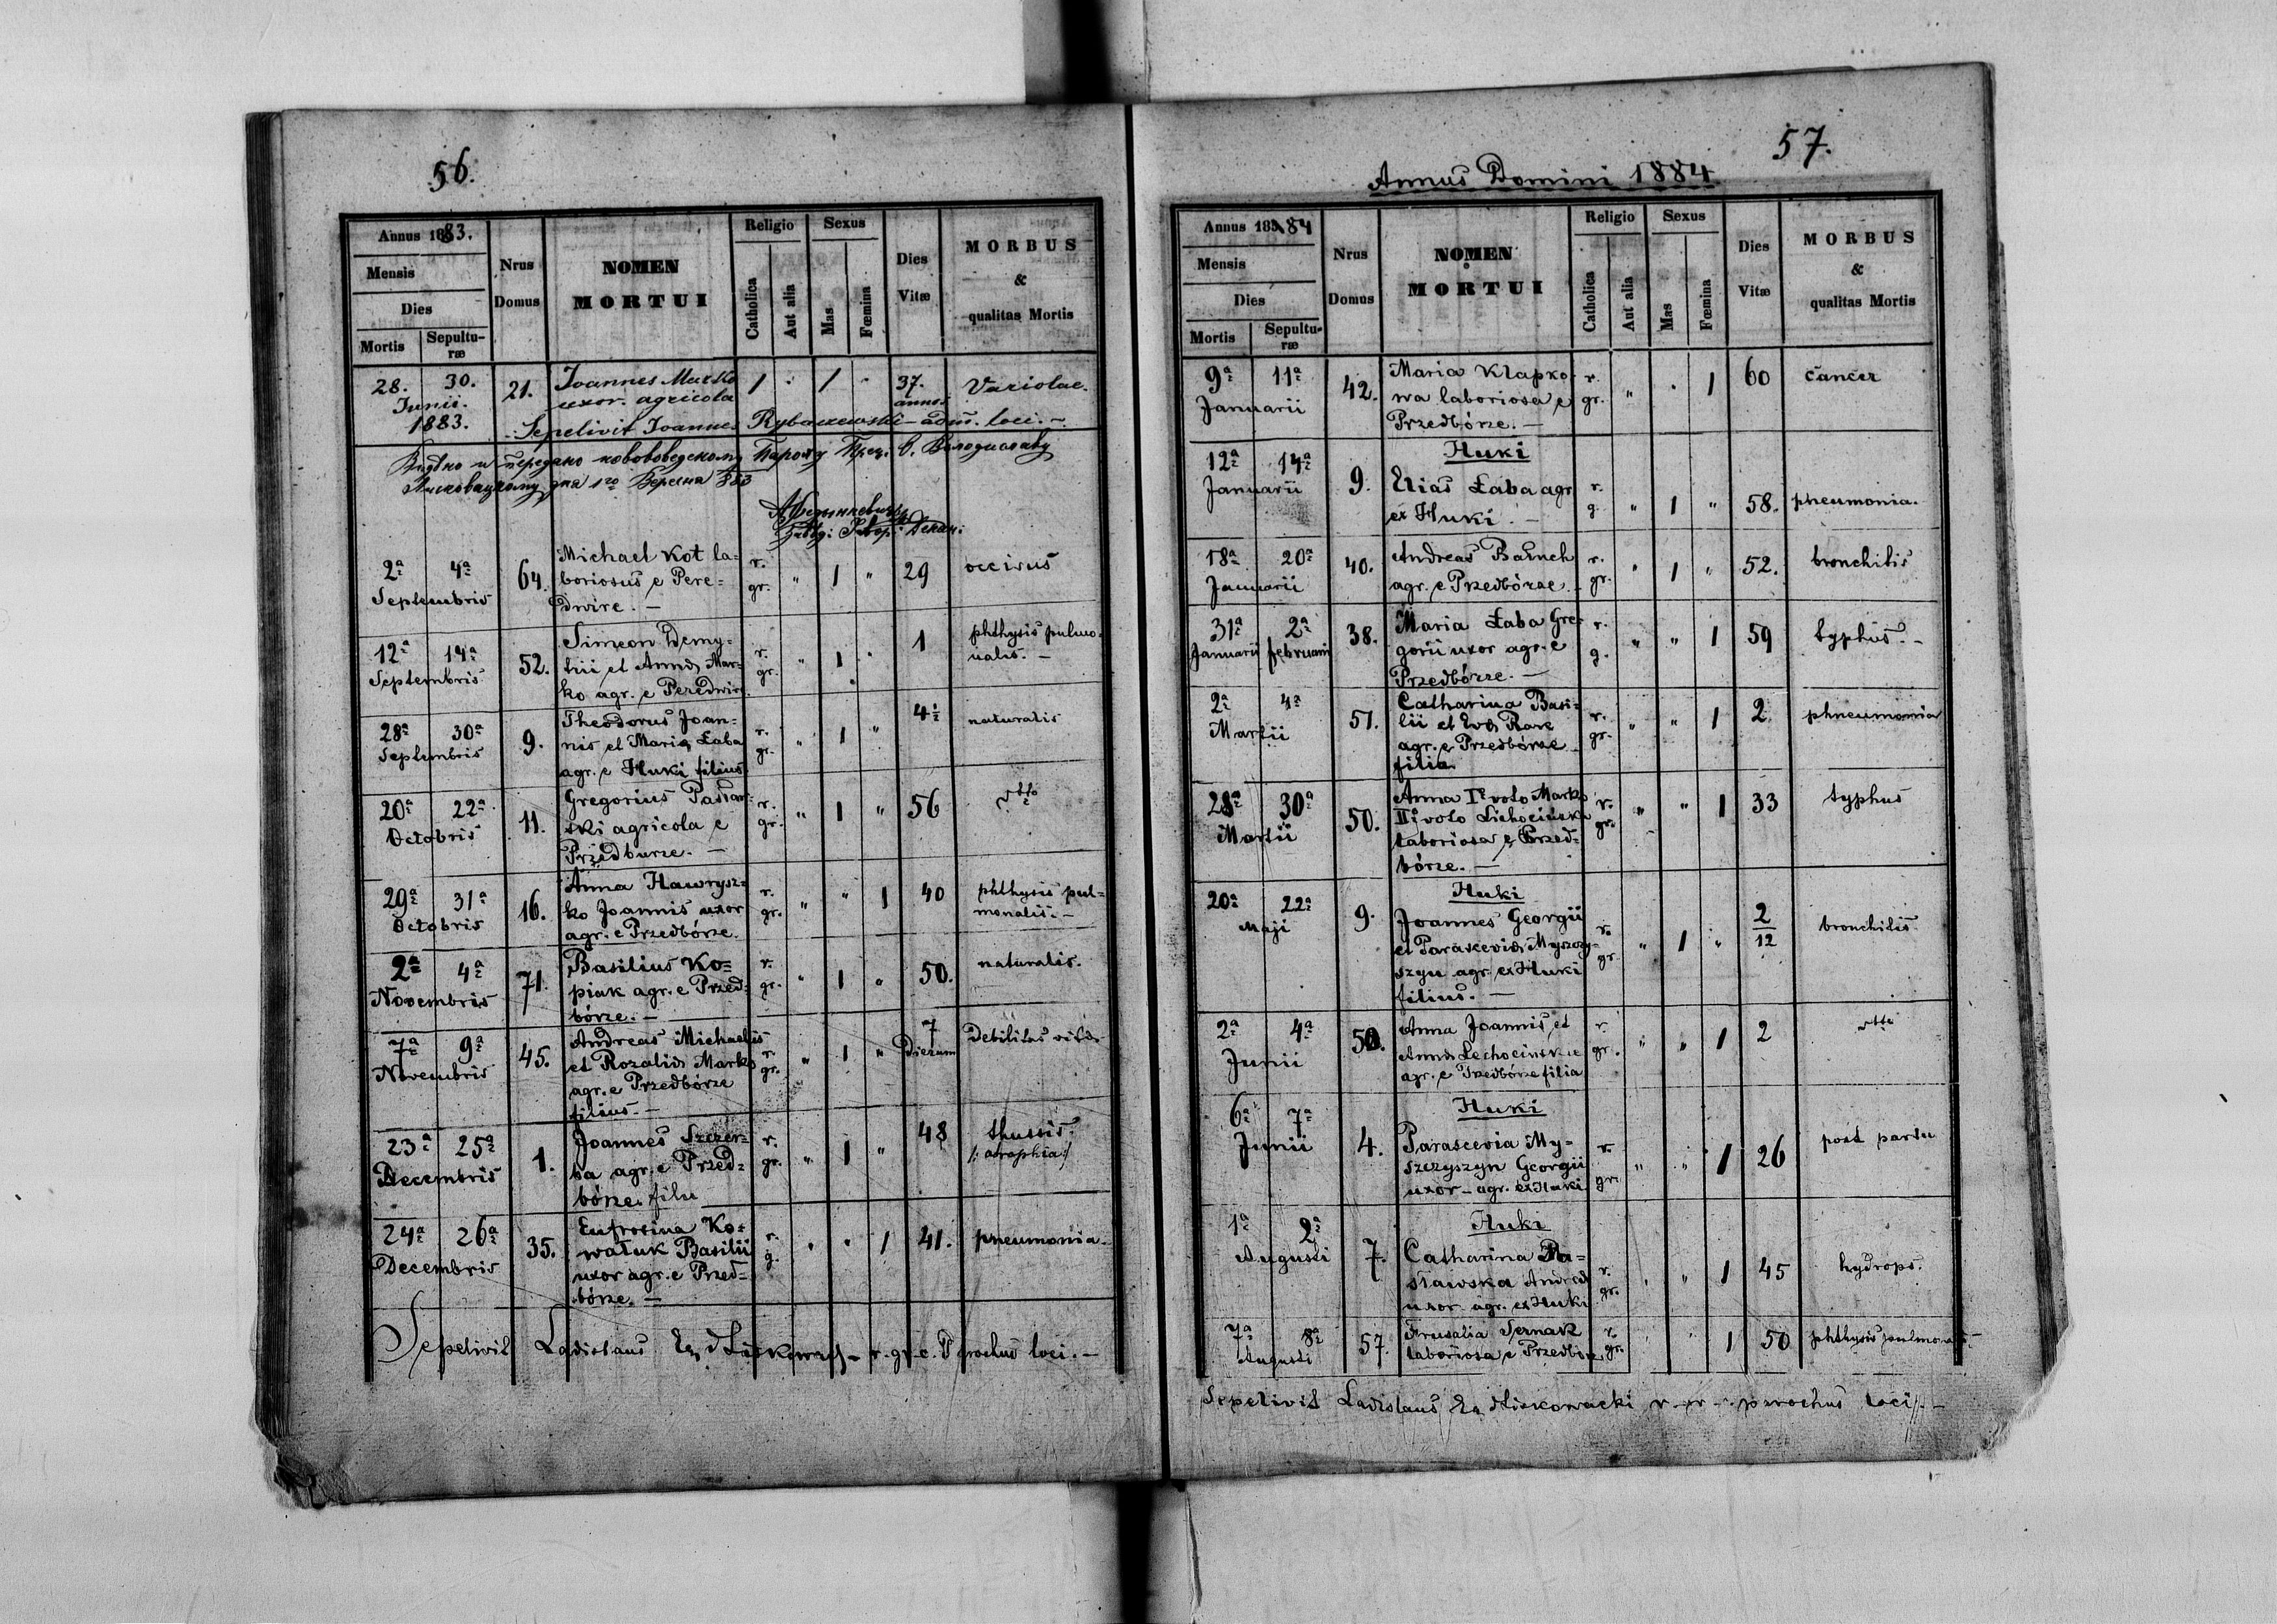 56.
Annus 1883.
Mensis
Dies
Mortis
Sepulturæ
Nrus Domus
NOMEN
MORTUI
Religio
Catholica
Aut alia
Sexus
Mas
Fœmina
Dies Vitæ
MORBUS
&
qualitas Mortis
28. 30. 21. Joannes Marko 1 " 1 " 37. Variolae.
Junii. uxor. agricola annos
1883. Sepelivit Joannes Rybaczewski adm. loci. -
2ª 4ª 64. Michael Kot la= r. " 1 " 29 occisus
Septembris boriosus e Pere= gr.
dwire. -
12ª 14ª 52. Simeon Demy= r. " 1 " 1 phthysis pulmo=
Septembris trii et Annæ Mar= gr. nalis. -
ko agr. e Peredwire
28ª 30ª 9. Theodorus Joan= r. " 1 " 4½ naturalis
Septembris nis et Mariæ Łaba gr.
agr. e Huki filius
20ª 22ª 11. Gregorius Pasław= r. " 1 " 56 dtto
Octobris ski agricola e gr.
Przedburze. -
29ª 31ª 16. Anna Hawrysz= r. " " 1 40 phthysis pul=
Octobris ko Joannis uxor gr. monalis. -
agr. e Przedbórze.
2ª 4ª 71. Basilius Ko= r. " 1 " 50. naturalis.
Novembris piak agr. e Przed= gr.
bórze. -
7ª 9ª 45. Andreas Michaelis r. " 1 " 7 Debilitas vitæ
Novembris et Rozaliæ Marko gr. Dierum
agr. e Przedbórze
filius. -
23ª 25ª 1. Joannes Szczer= r. " 1 " 48 thussis.
Decembris ba agr. e Przed= gr. /: atrophia :/
bórze
24ª 26ª 35. Eufrosina Ko= r. " " 1 41. pneumonia -
Decembris wałuk Basilii g.
uxor agr. e Przed=
bórze. -
Sepelivit Ladislaus r. gr. c. Parochus loci. -
57.
Annus Domini 1884
Annus 1884
Mensis
Dies
Mortis
Sepulturæ
Nrus Domus
NOMEN
MORTUI
Religio
Catholica
Aut alia
Sexus
Mas
Fœmina
Dies Vitæ
MORBUS
&
qualitas Mortis
9ª 11ª 42. Maria Klapko= r. " " 1 60 cancer
Januarii wa laboriosa e gr.
Przedbórze. -
Huki
12ª 14ª 9. Elias Łaba agr r. " 1 " 58. pneumonia.
Januarii ex Huki. - g.
18ª 20ª 40. Andreas Baruch r. " 1 " 52. bronchitis
Januarii agr. e Przedbórze. gr.
31ª 2ª 38. Maria Łaba Gre= r. " " 1 59 typhus. -
Januarii Februarii gorii uxor agr. e g.
Przedbórze. -
2ª 4ª 51. Catharina Basi= r. " " 1 2 phneumonia
Martii lii et Evæ Rare gr.
agr. e Przedbórze
filia
28ª 30ª 50. Anna Iº voto Marko r. " " 1 33 typhus
Martii IIº voto Lichocińska gr.
laboriosa e Przed=
bórze. -
Huki
20ª 22ª 9. Joannes Georgii r. " 1 " 2/12 bronchitis
Maji et Parasceviæ Myszczy= gr.
szyn agr. ex Huki
filius. -
2ª 4ª 50. Anna Joannis et r. " " 1 2 dtto
Junii Annæ Lechocińskie gr.
agr. e Przedbórze filia
Huki
6ª 7ª 4. Parascevia My= r. " " 1 26 post partu
Junii szczyszyn Georgii gr.
uxor - agr. ex Huki
Huki
1ª 2ª 7. Catharina Pa= r. " " 1 45 hydrops.
Augusti sławska Andreæ gr.
uxor agr. ex Huki
7ª 8ª 57. Fruzalia Sernak r. " 1 50 phthysis pulmonalis
Augusti laboriosa e Przedbórze gr.
Sepelivit Ladislaus parochus loci. -